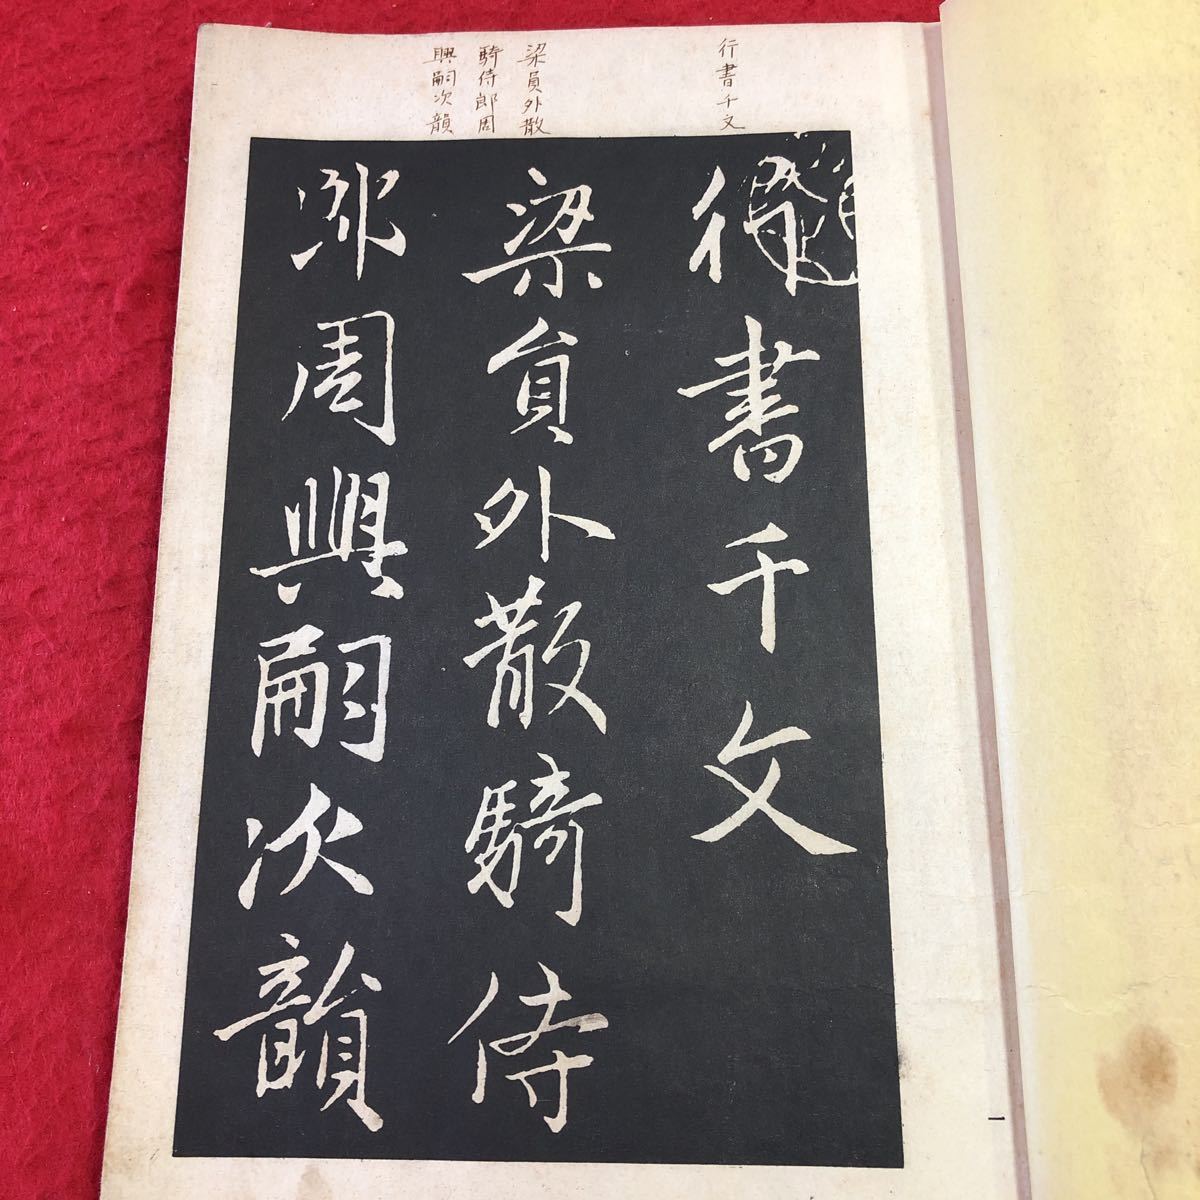 行書千文
梁員外散
騎侍郎周
興嗣次韻
行書千文
梁員外散騎侍
郎周興嗣次韻
一